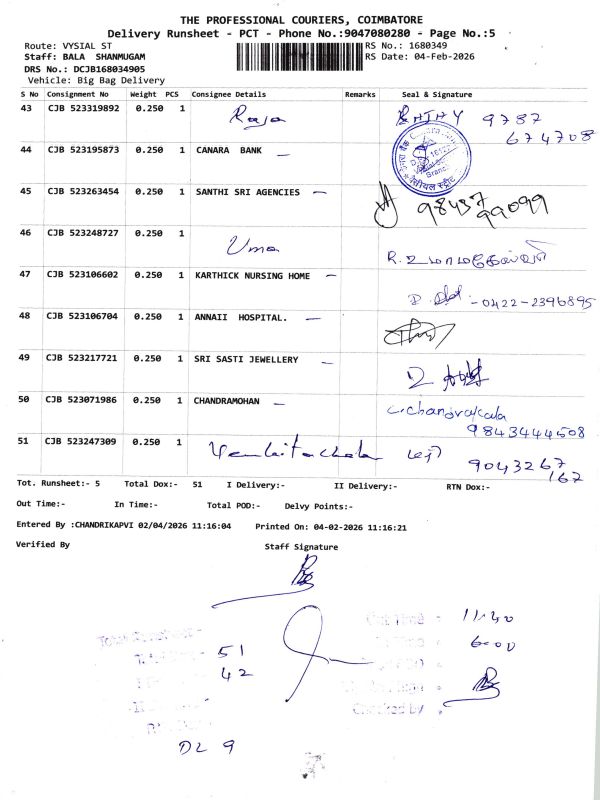 THE PROFESSIONAL COURIERS, COIMBATORE
Delivery Runsheet - PCT - Phone No.:9047080280 - Page No.:5
Route: VYSIAL ST RS No.: 1680349
Staff: BALA SHANMUGAM RS Date: 04-Feb-2026
DRS No.: DCJB168034905
Vehicle: Big Bag Delivery
S No Consignment No Weight PCS Consignee Details Remarks Seal & Signature
43 CJB 523319892 0.250 1 Raja 9787
674708
44 CJB 523195873 0.250 1 CANARA BANK —
45 CJB 523263454 0.250 1 SANTHI SRI AGENCIES — 98437
99099
46 CJB 523248727 0.250 1 Uma R. உமாமகேஸ்வரி
47 CJB 523106602 0.250 1 KARTHICK NURSING HOME — 0422-2396895
48 CJB 523106704 0.250 1 ANNAII HOSPITAL. —
49 CJB 523217721 0.250 1 SRI SASTI JEWELLERY —
50 CJB 523071986 0.250 1 CHANDRAMOHAN — C. Chandrakala
9843444508
51 CJB 523247309 0.250 1 Venkitachala 9043267
167
Tot. Runsheet:- 5 Total Dox:- 51 I Delivery:- II Delivery:- RTN Dox:-
Out Time:- In Time:- Total POD:- Delvy Points:-
Entered By :CHANDRIKAPVI 02/04/2026 11:16:04 Printed On: 04-02-2026 11:16:21
Verified By Staff Signature
Out Time : 11:40
6:00
51
42
Checked by
DL 9